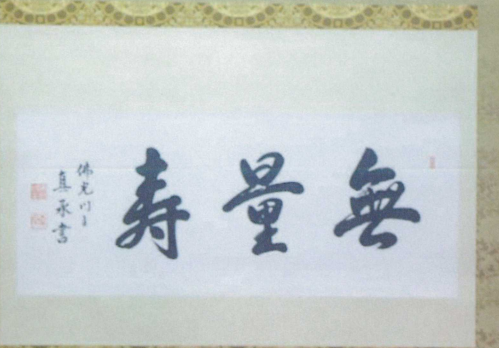 無量寿
佛光門主
真承書